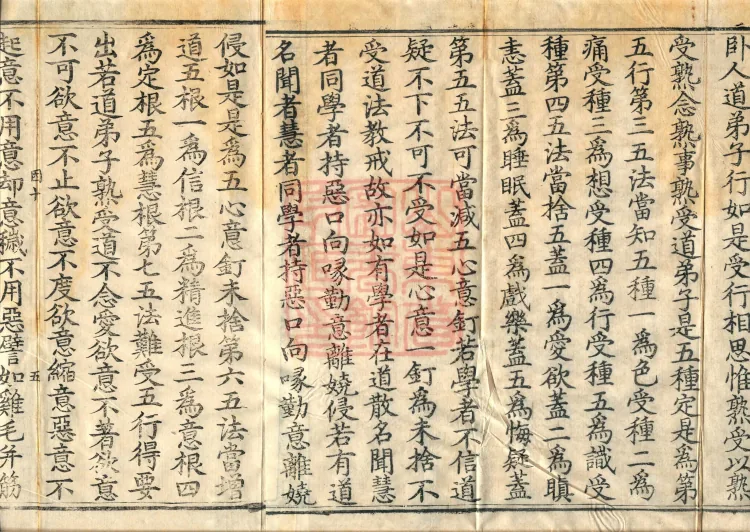 卧人道弟子行如是受行相思惟熟受以熟
受熟念熟事熟受道弟子是五種定是爲第
五行第三五法當知五種一爲色受種二爲
痛受種三爲想受種四爲行受種五爲識受
種第四五法當捨五蓋一爲愛欲蓋二爲瞋
恚蓋三爲睡眠蓋四爲戲樂蓋五爲悔疑蓋
第五五法可當減五心意釘若學者不信道
疑不下不可不受如是心意一釘爲未捨不
受道法教戒故亦如有學者在道散名聞慧
者同學者持惡口向喙勤意離嬈侵若有道
名聞者慧者同學者持惡口向喙勤意離嬈
侵如是是爲五心意釘未捨第六五法當增
道五根一爲信根二爲精進根三爲意根四
爲定根五爲慧根第七五法難受五行得要
出若道弟子熟受道不念愛欲意不著欲意
不可欲意不止欲意不度欲意縮意惡意不
十 五
起意不用意却意穢不用惡譬如雞毛并筋